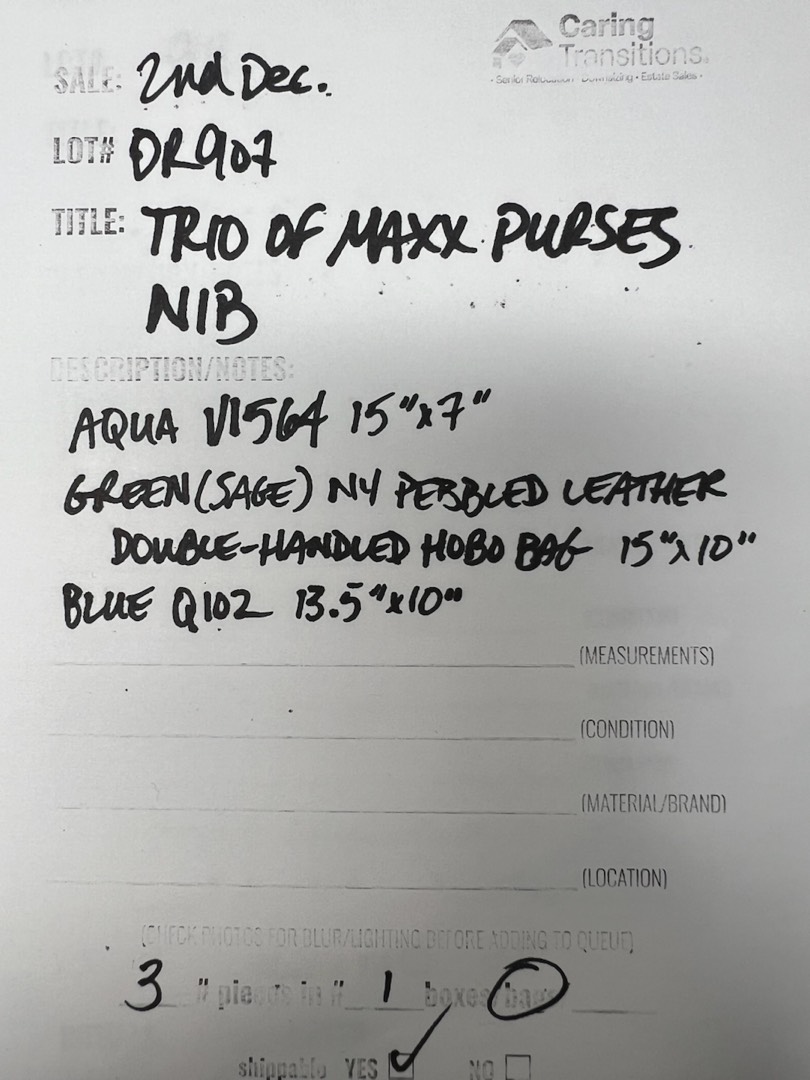 Caring
Transitions.
• Senior Relocation • Downsizing • Estate Sales •
SALE: 2nd Dec.
LOT# DR907
TITLE: TRIO OF MAXX PURSES
NIB
DESCRIPTION/NOTES:
AQUA V1564 15"x7"
GREEN (SAGE) NY PEBBLED LEATHER
DOUBLE-HANDLED HOBO BAG 15"x10"
BLUE Q102 13.5"x10"
(MEASUREMENTS)
(CONDITION)
(MATERIAL/BRAND)
(LOCATION)
(CHECK PHOTOS FOR BLUR/LIGHTING BEFORE ADDING TO QUEUE)
3 # pieces in # 1 boxes/bags
shippable YES ✓ NO